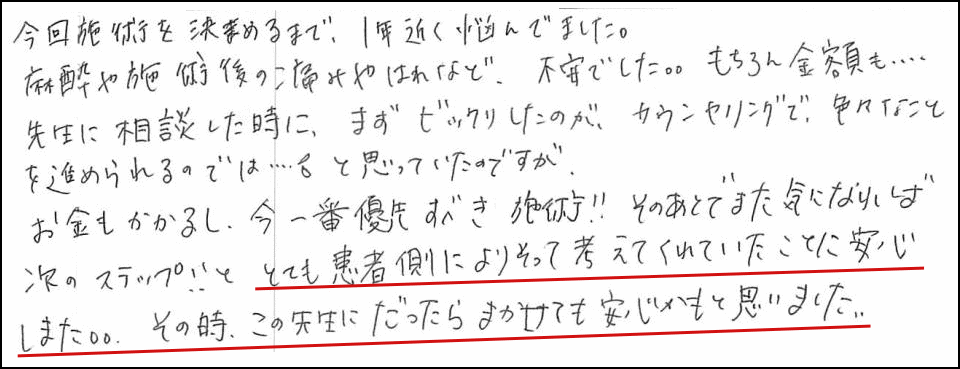 今回施術を決めるまで、1年近く悩んでました。
麻酔や施術後の痛みやはれなど、不安でした。。もちろん金額も‥‥
先生に相談した時に、まずビックリしたのが、カウンセリングで、色々なこと
を進められるのでは‥‥。と思っていたのですが、
お金もかかるし、今一番優先すべき施術!! そのあとでまた気になりれば
次のステップ!!と とても患者側によりそって考えてくれていたことに安心
しました。。その時、この先生にだったらまかせても安心かもと思いました。。